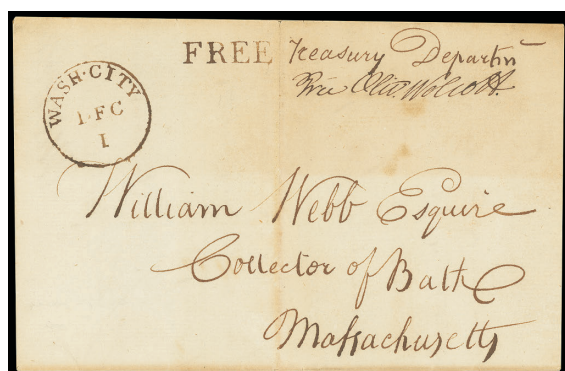 FREE Treasury Departm
Free Oliv. Wolcott.
WASH·CITY
DEC
1
William Webb Esquire
Collector of Bath
Massachusetts